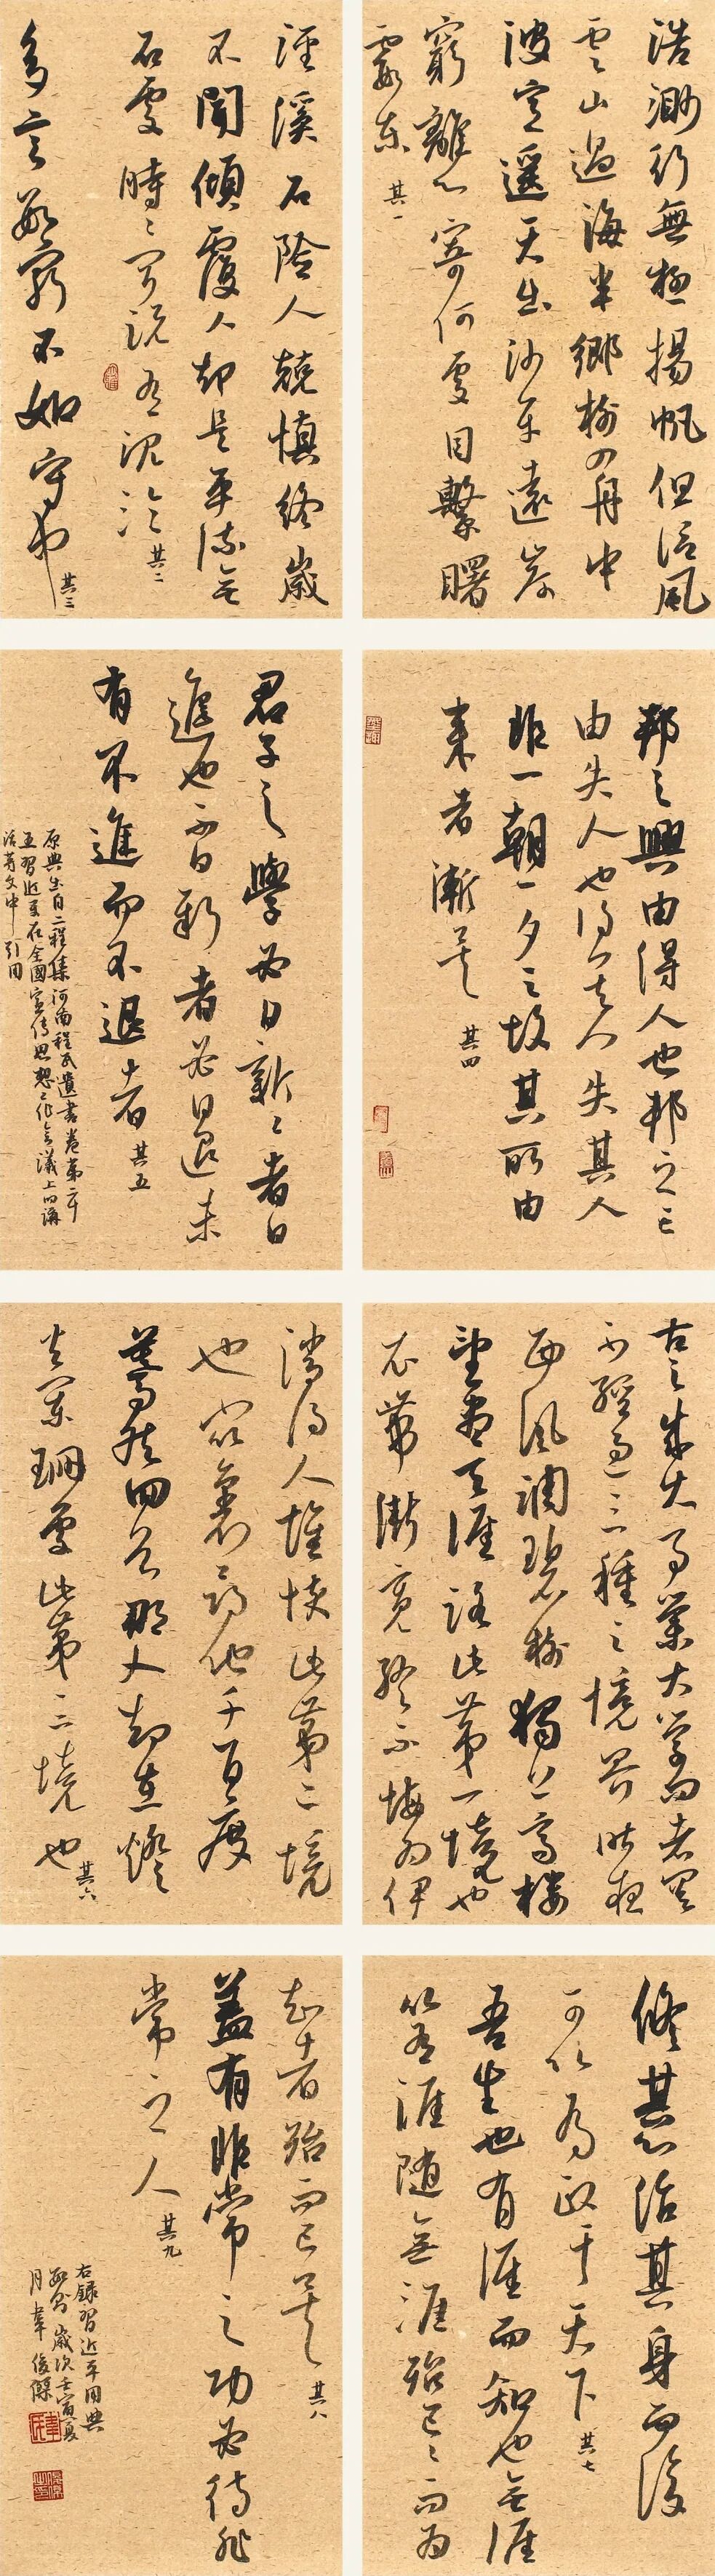 浩渺行無極揚帆但信風
雲山過海半鄉樹入舟中
波定遙天出沙平遠岸
窮離心寄何處目擊曙
霞東 其一
涇溪石險人兢慎終歲
不聞傾覆人却是平流無
石處時〻聞說有沉淪 其二
多言數窮不如守中 其三
邦之興由得人也邦之亡
由失人也得其人失其人
非一朝一夕之故其所由
來者漸矣 其四
君子之學必日新〻者日
進也不日新者必日退未
有不進而不退者 其五
原典出自二程集河南程氏遺書卷第二十
五習近平在全國宣傳思想工作會議上的講
話等文中引用
古之成大事業大學問者罔
不經過三種之境界昨夜
西風凋碧樹獨上高樓
望盡天涯路此第一境也
衣帶漸寬終不悔為伊
消得人憔悴此第二境
也衆裏尋他千百度
驀然回首那人却在燈
火闌珊處此第三境也 其六
修其心治其身而後
可以為政于天下 其七
吾生也有涯而知也無涯
以有涯隨無涯殆已〻而為
知者殆而已矣 其八
蓋有非常之功必待非
常之人 其九
右錄習近平用典
歲次壬寅夏
月韋俊傑